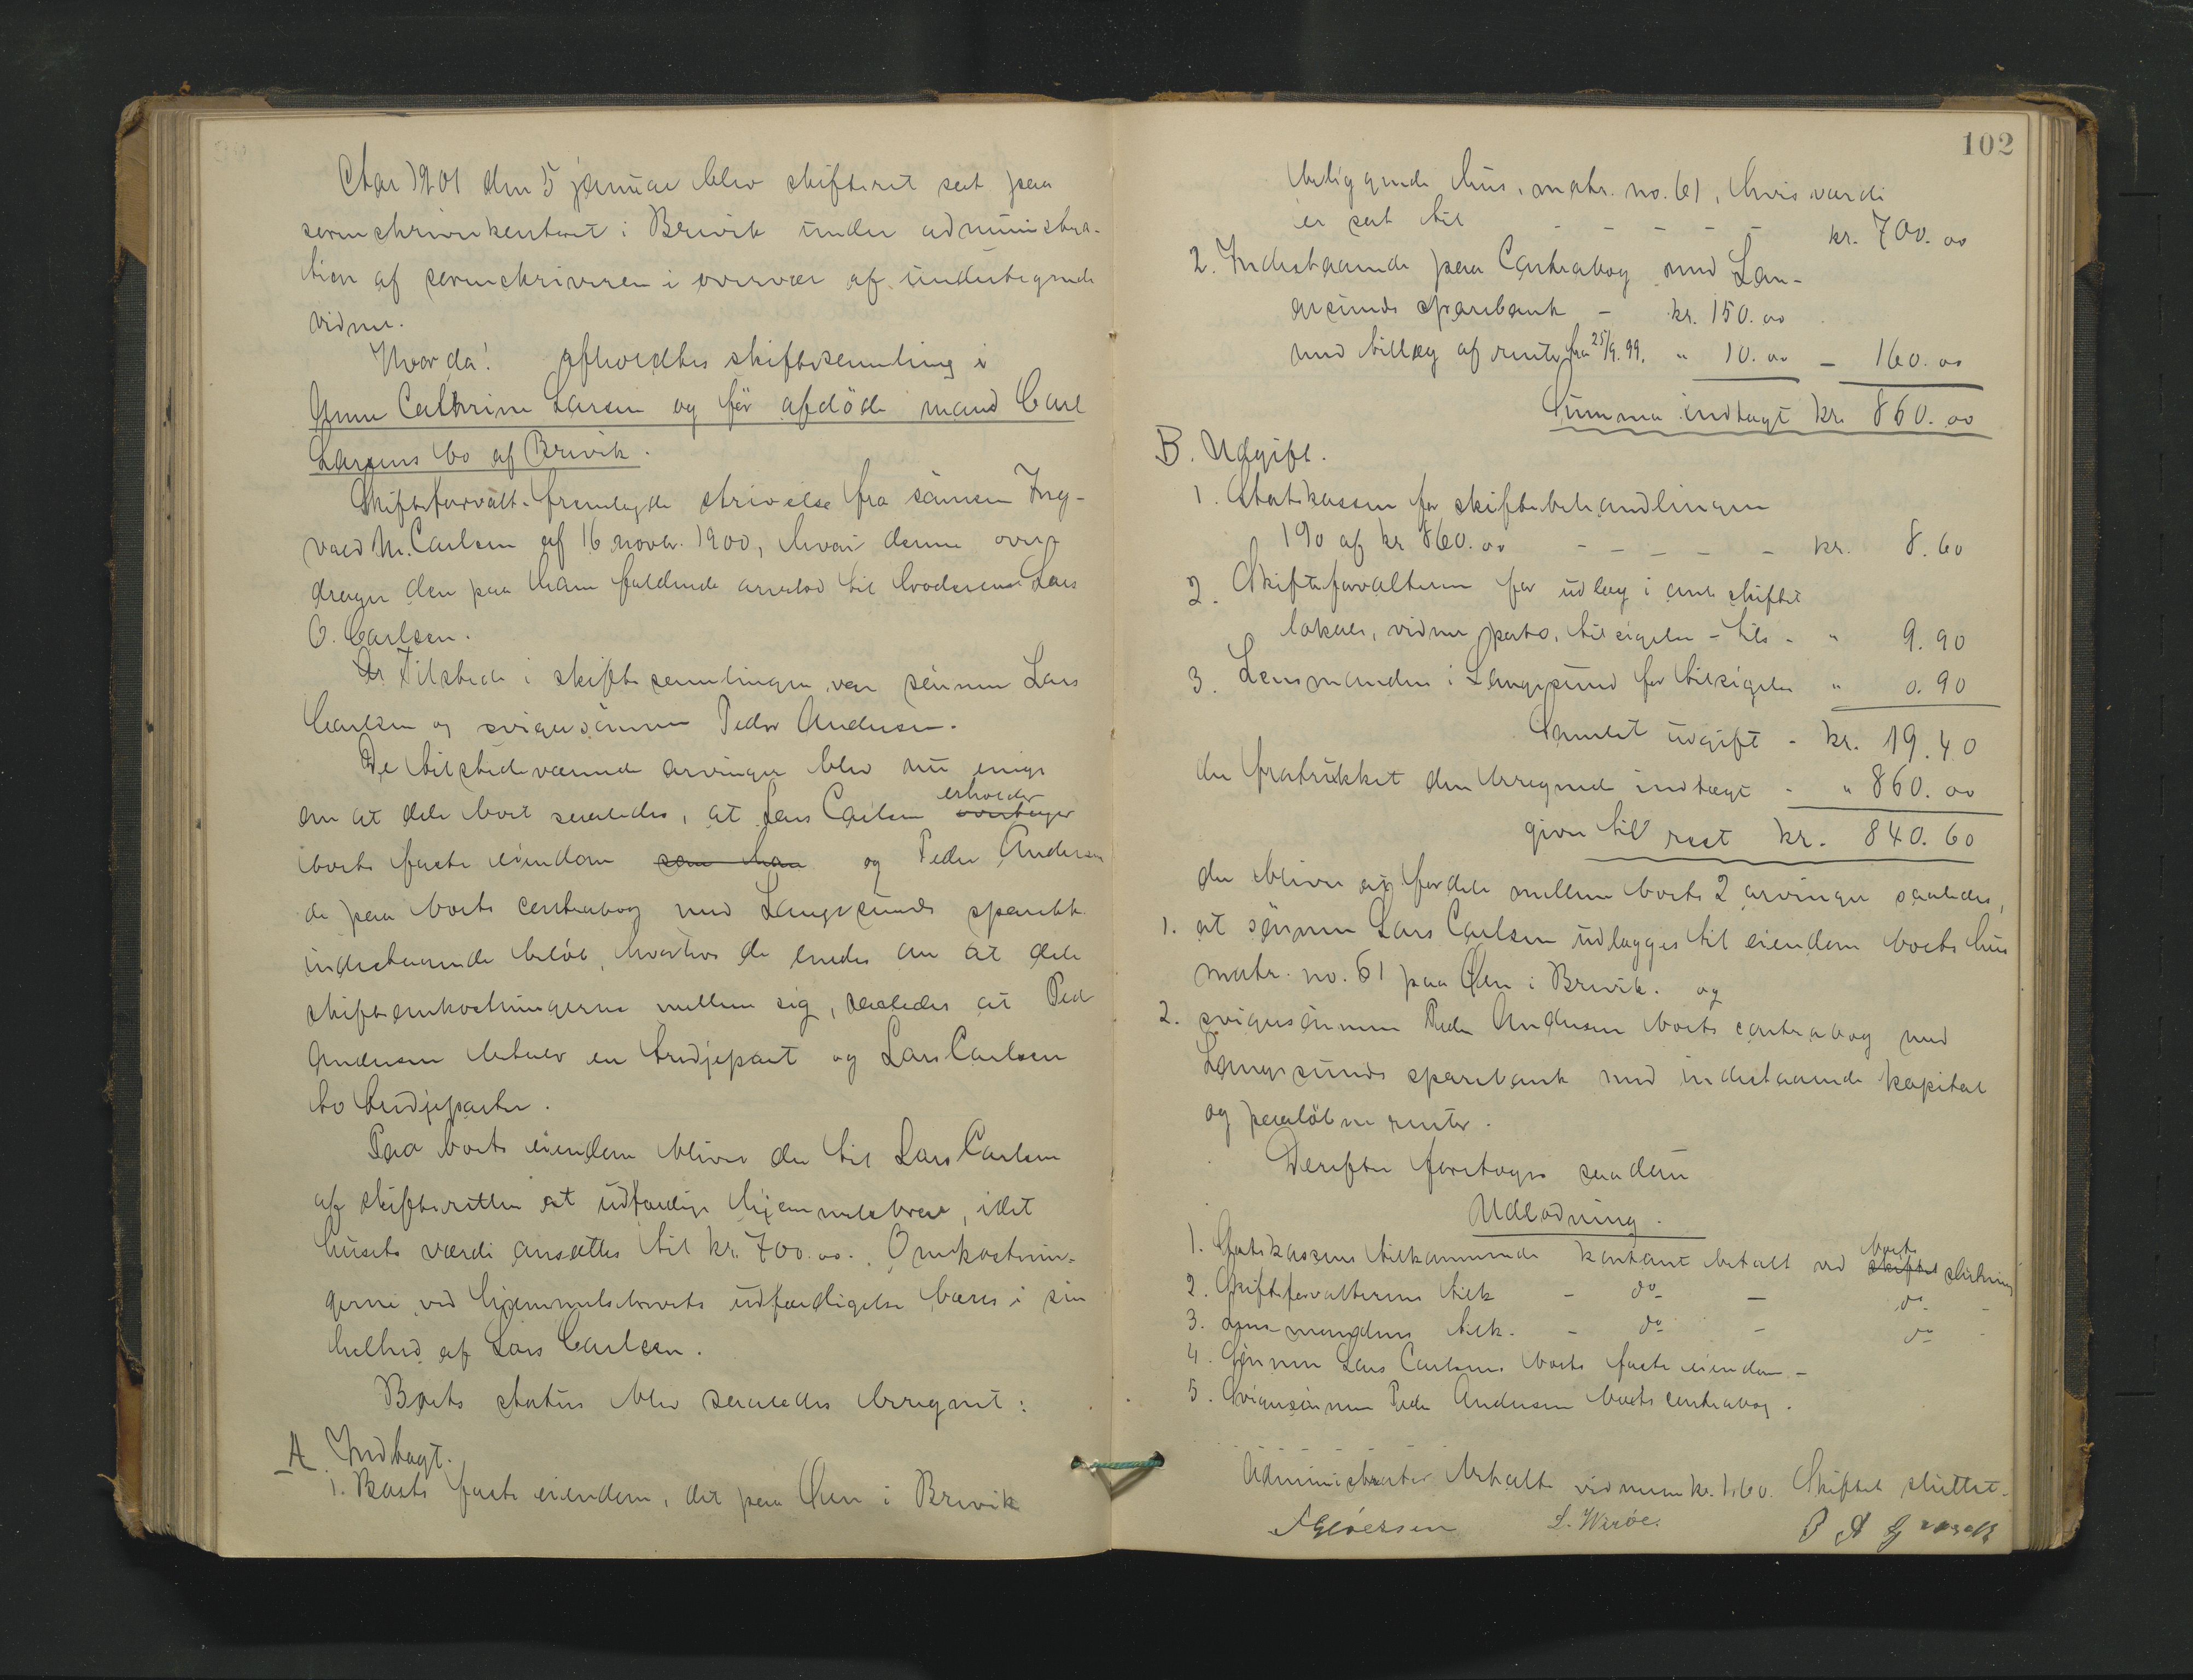 Aar 1901 den 5 januar blev skifteret sat paa
sorenskriverkontoret i Brevik under administra-
tion af sorenskriveren i overvær af undertegnede
vidner.
Hvorda! afholdtes skiftesamling i
Anne Cathrine Larsen og før afdøde mand Carl
Larsens bo af Brevik.
Skifteforvalt. fremlagde skrivelse fra sønnen Ing-
vald M. Carlsen af 16 novbr. 1900, hvori denne over-
drager den paa ham faldende arvelod til broderen Lars
O. Carlsen.
Tilstede i skiftesamlingen var sønnen Lars
Carlsen og svigersønnen Peder Andersen.
De tilstedeværende arvinger blev nu enige
om at dele boet saaledes, at Lars Carlsen overtager erholder
boets faste eiendom som han og Peder Andersen
de paa boets contrabog med Langesunds sparebk.
indestaaende beløb, hvorhos de enedes om at dele
skifteomkostningerne mellem sig, saaledes at Ped
Andersen betaler en tredjepart og Lars Carlsen
to tredjeparter.
Paa boets eiendom bliver der til Lars Carlsen
af skifteretten at udfærdige hjemmelsbrev, idet
husets værdi ansættes til kr. 700.00. Omkostnin-
gerne ved hjemmelsbrevets udfærdigelse bæres i sin
helhed af Lars Carlsen.
Boets status blev saaledes beregnet:
A. Indtægt.
1. Boets faste eiendom, det paa Øen i Brevik
102
beliggende hus, matr. no. 61, hvis værdi
er sat til - - - - - kr. 700.00
2. Indestaaende paa Contrabog med Lan-
gesunds sparebank - kr. 150.00
med tillæg af renter fra 25/9.99. " 10.00 - 160.00
Summa indtægt kr. 860.00
B. Udgift.
1. Statskassen for skiftebehandlingen
1% af kr 860.00 - - - - - kr. 8.60
2. Skifteforvalteren for udlæg i anl. skiftet
lokale, vidner, porto, tilsigelse - tils - " 9.90
3. Lensmanden i Langesund for tilsigelse " 0.90
Samlet udgift - kr. 19.40
der fratrukket den beregnede indtægt - " 860.00
giver til rest kr. 840.60
der bliver at fordele mellem boets 2 arvinger saaledes,
1. at sønnen Lars Carlsen udlægges til eiendom boets hus
matr. no. 61 paa Øen i Brevik. og
2. svigersønnen Peder Andersen boets contrabog med
Langesunds sparebank med indestaaende kapital
og paaløbne renter.
Derefter foretoges saadan
Udlodning.
1. Statskassens tilkommende kontant betalt ved skiftet boets slutning
2. Skifteforvalterens tilk - do - do -
3. Lensmandens tilk. - do - do -
4. Sønnen Lars Carlsens boets faste eiendom -
5. Svigersønnen Peder Andersen boets contrabog.
Administrator betalte vidnerne kr. 1.60. Skiftet sluttet.
L. Wirøe.